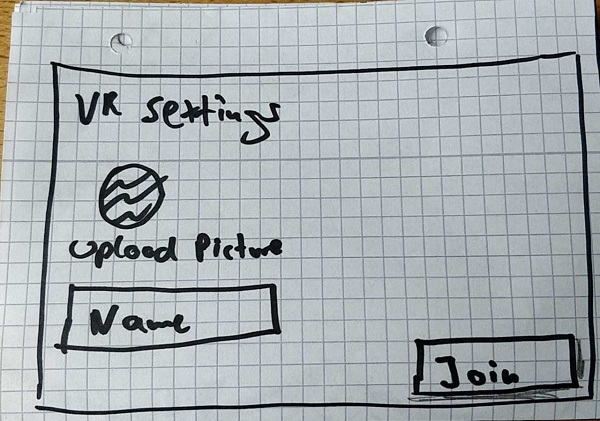 VR settings
Upload Picture
Name
Join